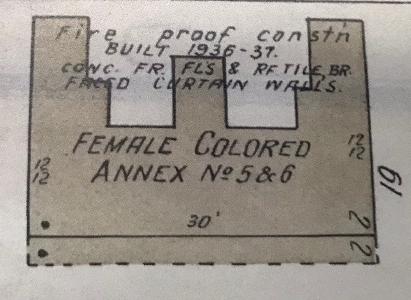 Fire proof constn
BUILT 1936-37.
CONC. FR. FL'S & RF. TILE, BR.
FACED CURTAIN WALLS.
FEMALE COLORED
ANNEX No 5 & 6
12
12
12
12
19
30'
2
2